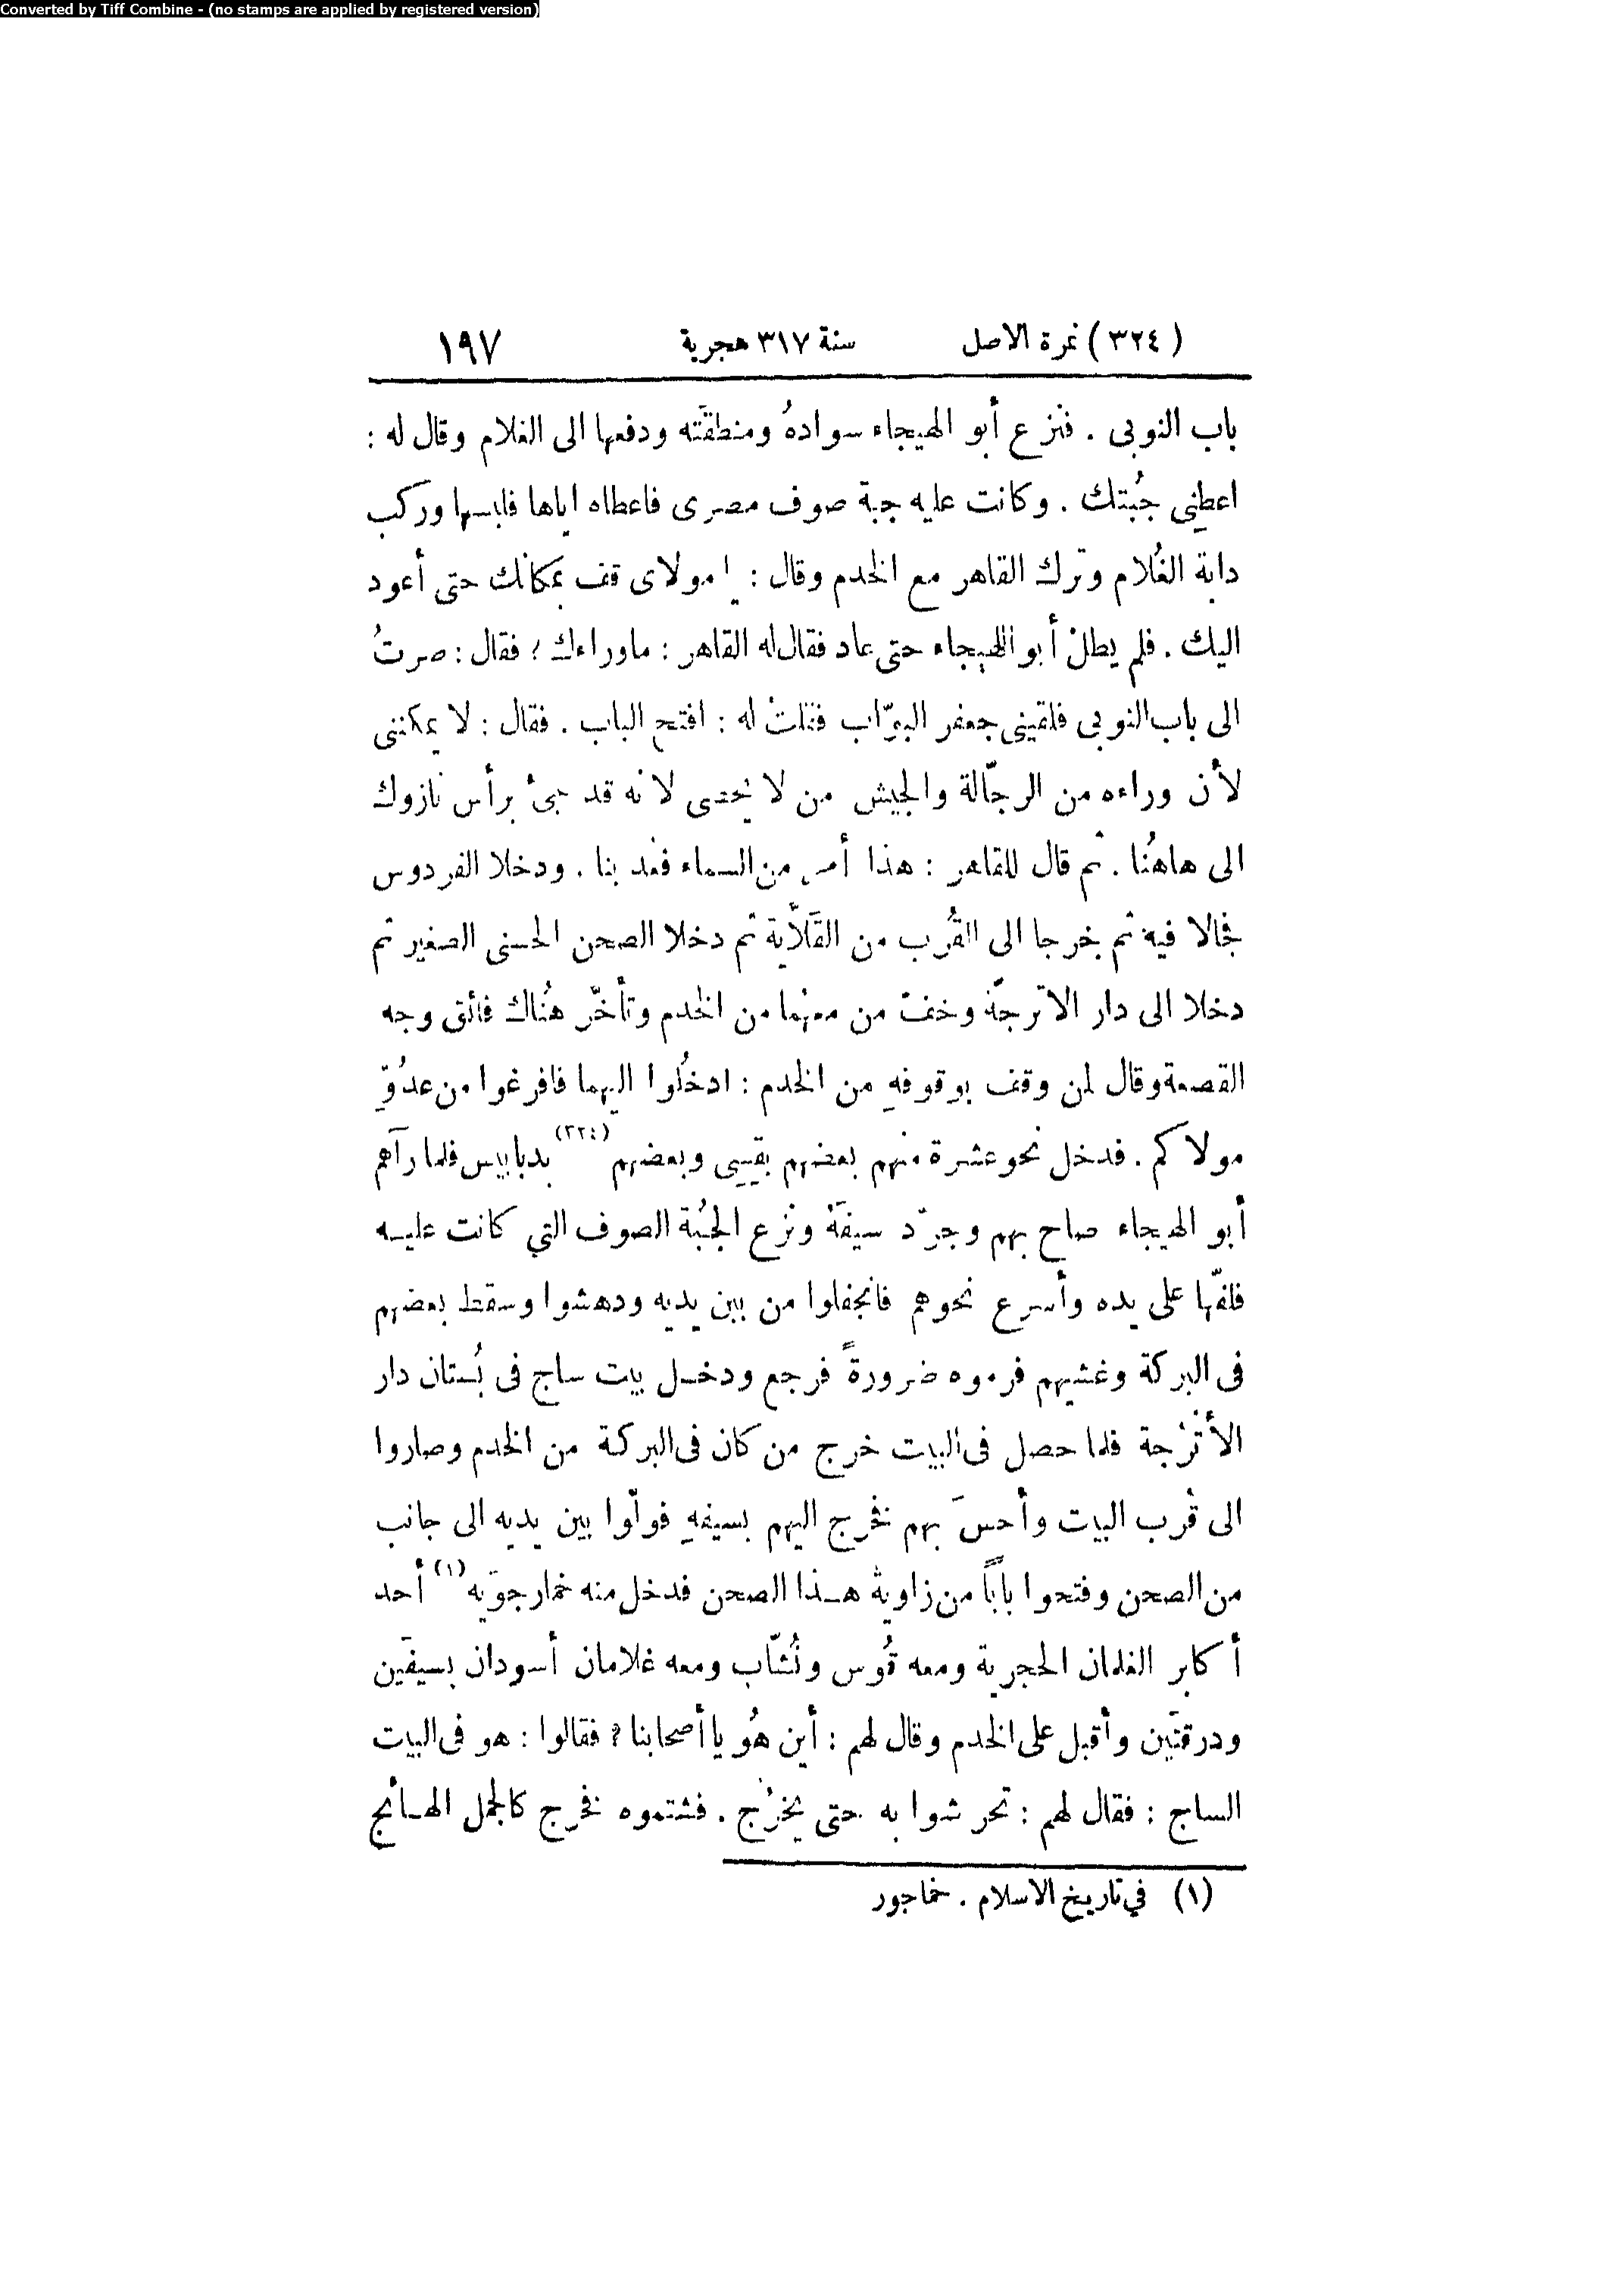 Converted by Tiff Combine - (no stamps are applied by registered version)
(٣٢٤) نمرة الاصل سنة ٣١٧ هجرية ١٩٧
باب النوبى . فنزع أبو الهيجاء سوادهُ ومنطقَته ودفعها الى الغلام وقال له :
اعطِنِى جُبتك . وكانت عليه جبة صوف مصرى فاعطاه اياها فلبسها وركب
دابة الغُلام وترك القاهر مع الخدم وقال : يا مولاى قف بمكانك حتى أعود
اليك . فلم يطلْ أبو الهيجاء حتى عاد فقال له القاهر : ماوراءك ؟ فقال : صرتُ
الى باب النوبى فلقينى جعفر البوّاب فقلت له : افتح الباب . فقال : لا يمكننى
لأن وراءه من الرجّالة والجيش من لا يحصى لانه قد جىء برأس نازوك
الى هاهُنا . ثم قال للقاهر : هذا أمر من السماء فعد بنا . ودخلا الفردوس
فجالا فيه ثم خرجا الى القُرب من القَلَّاية ثم دخلا الصحن الحسنى الصغير ثم
دخلا الى دار الاترجّة وخفّ من معهما من الخدم وتأخّر هُناك فائق وجه
القصعة وقال لمن وقف بوقوفهِ من الخدم : ادخُلوا اليهما فافرغوا من عدُوّ
مولاكم . فدخل نحو عشرة منهم بعضهم بقِسِى وبعضهم (٣٢٤) بدبابيس فلما رآهم
أبو الهيجاء صاح بهم وجرّد سيفَهُ ونزع الجُبّة الصوف التي كانت عليه
فلفّها على يده وأسرع نحوهم فانجفلوا من بين يديه ودهشوا وسقط بعضهم
فى البركة وغشيهم فرموه ضرورةً فرجع ودخل بيت ساج فى بُستان دار
الأُترُجة فلما حصل فى البيت خرج من كان فى البركة من الخدم وصاروا
الى قُرب البيت وأحسَ بهم فخرج اليهم بسيفهِ فولّوا بين يديه الى جانب
من الصحن وفتحوا باباً من زاوية هذا الصحن فدخل منه خمارجوَيه (١) أحد
أكابر الغلمان الحجرية ومعه قَوس ونُشّاب ومعه غلامان أسودان بسيفَين
ودرقتَين وأقبل على الخدم وقال لهم : أين هُو يا أصحابنا ؟ فقالوا : هو فى البيت
الساج : فقال لهم : تحرشوا به حتى يخرُج . فشتموه فخرج كالجمل الهائج
(١) في تاريخ الاسلام . خماجور